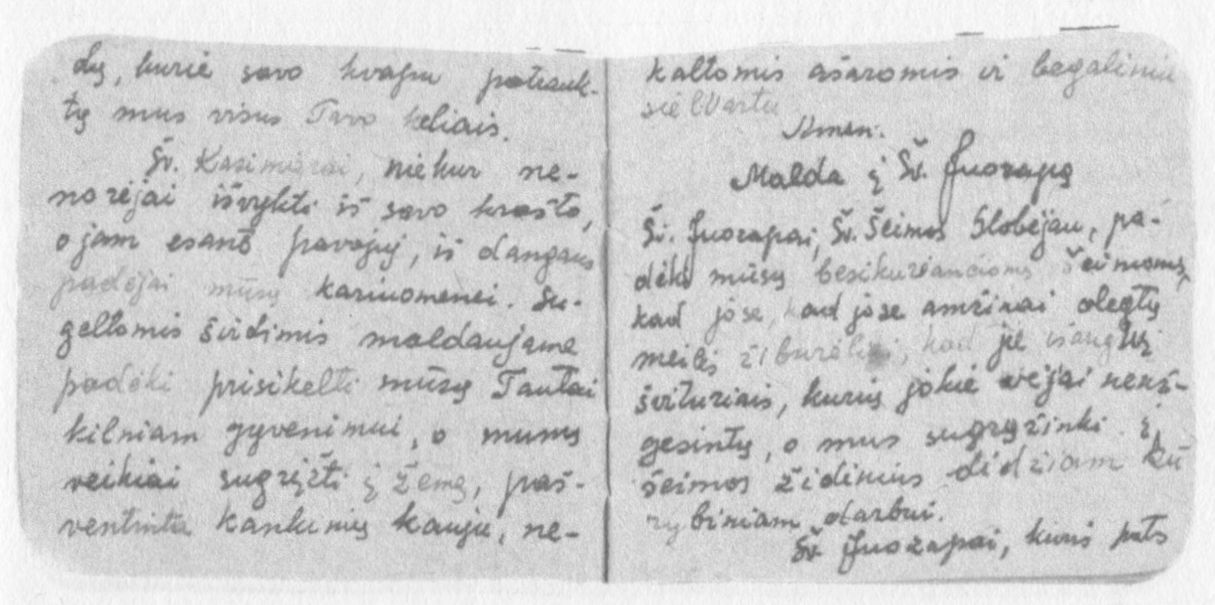 dų, kurie savo kvapu patrauk-
tų mus visus Tavo keliais.
Šv. Kazimierai, niekur ne-
norėjai išvykti iš savo krašto,
o jam esant pavojuj, iš dangaus
padėjai mūsų kariuomenei. Su-
geltomis širdimis maldaujame
padėki prisikelti mūsų Tautai
kilniam gyvenimui, o mums
veikiai sugrįžti į žemę, paš-
ventinta kankinių krauju, ne-
kaltomis ašaromis ir begaliniu
sielvartu
Amen.
Malda į Šv. Juozapą
Šv. Juozapai, Šv. Šeimos Globėjau, pa-
dėki mūsų besikuriančioms šeimoms,
kad jose, kad jose amžinai degtų
meilės žiburėliai, kad jie išaugtų
švituriais, kurių jokie vėjai neuž-
gesintų, o mus sugrąžinki į
šeimos židinius didžiam kū
rybiniam darbui.
Šv. Juozapai, kuris pats